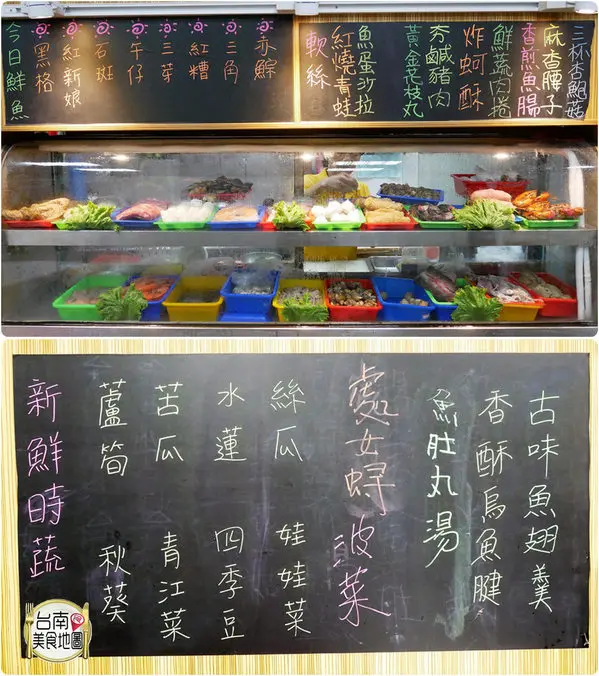 今日鮮魚
黑格
紅新娘
石斑
午仔
三芽
紅糟
三角
赤鯮
軟絲
紅燒青蛙
魚蛋沙拉
黃金花枝丸
夯鹹豬肉
炸蚵酥
鮮蔬肉捲
香煎魚腸
麻杳腰子
三杯杏鮑菇
新鮮時蔬
蘆筍 秋葵
苦瓜 青江菜
水蓮 四季豆
絲瓜 娃娃菜
處女蟳 波菜
魚肚丸湯
香酥烏魚腱
古味魚翅羹
台南
美食地圖